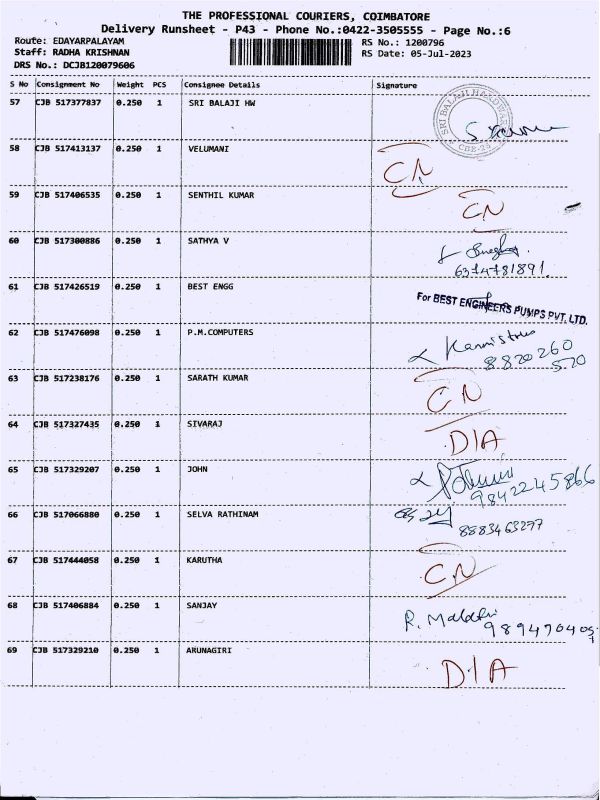 THE PROFESSIONAL COURIERS, COIMBATORE
Delivery Runsheet - P43 - Phone No.:0422-3505555 - Page No.:6
Route: EDAYARPALAYAM RS No.: 1200796
Staff: RADHA KRISHNAN RS Date: 05-Jul-2023
DRS No.: DCJB120079606
S No Consignment No Weight PCS Consignee Details Signature
57 CJB 517377837 0.250 1 SRI BALAJI HW
SRI BALAJI HARDWARE CBE-25
58 CJB 517413137 0.250 1 VELUMANI CN
59 CJB 517406535 0.250 1 SENTHIL KUMAR CN
60 CJB 517300886 0.250 1 SATHYA V
6374781891.
61 CJB 517426519 0.250 1 BEST ENGG For BEST ENGINEERS PUMPS PVT. LTD.
62 CJB 517476098 0.250 1 P.M.COMPUTERS
8.820260
520
63 CJB 517238176 0.250 1 SARATH KUMAR CN
64 CJB 517327435 0.250 1 SIVARAJ DIA
65 CJB 517329207 0.250 1 JOHN
9842245866
66 CJB 517066880 0.250 1 SELVA RATHINAM
8883463297
67 CJB 517444058 0.250 1 KARUTHA CN
68 CJB 517406884 0.250 1 SANJAY R. Malathi
989470405
69 CJB 517329210 0.250 1 ARUNAGIRI DIA